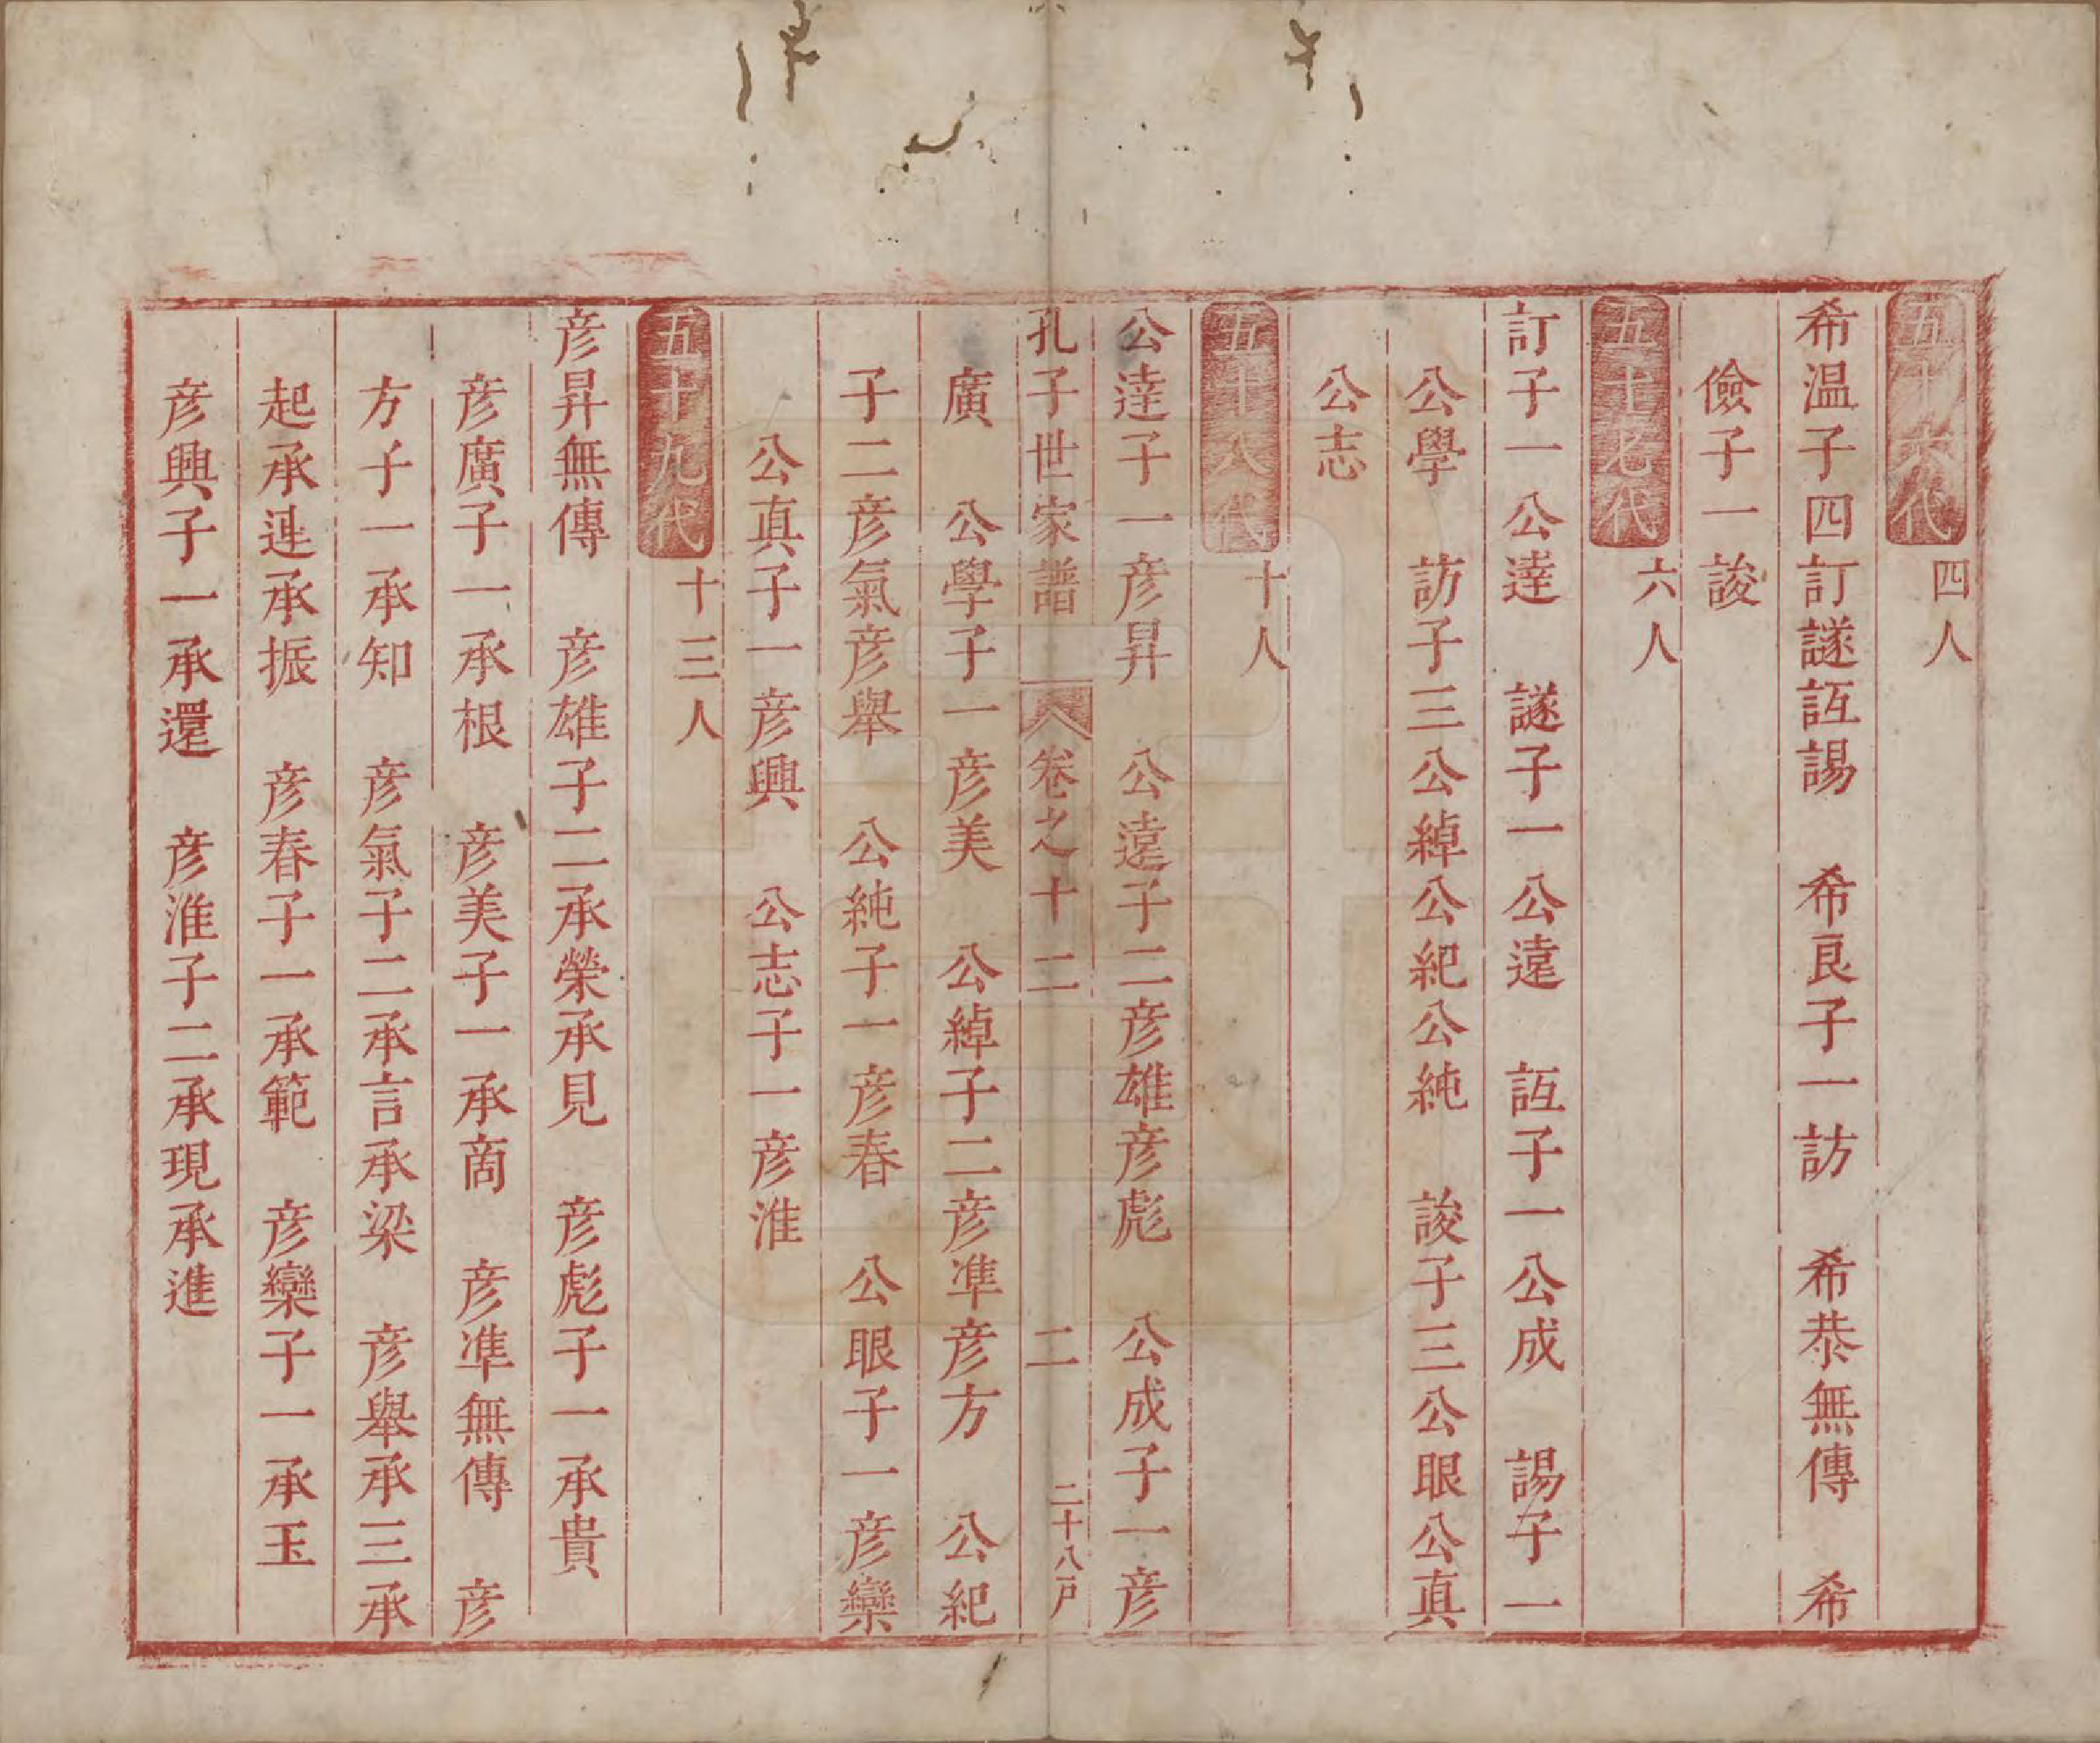 五十六代　四人
希温子四訂譢䛒諹　希良子一訪　希恭無傳　希
儉子一誜
五十七代　六人
訂子一公達　譢子一公遠　䛒子一公成　諹子一
公學　訪子三公綽公紀公純　誜子三公眼公真
公志
五十八代　十人
公達子一彦昇　公遠子二彦雄彦彪　公成子一彦
孔子世家譜　卷之十二　二　二十八戸
廣　公學子一彦美　公綽子二彦準彦方　公紀
子二彦氣彦舉　公純子一彦春　公眼子一彦欒
公真子一彦興　公志子一彦淮
五十九代　十三人
彦昇無傳　彦雄子二承榮承見　彦彪子一承貴
彦廣子一承根　彦美子一承啇　彦準無傳　彦
方子一承知　彦氣子二承言承梁　彦舉承三承
起承連承振　彦春子一承範　彦欒子一承玉
彦興子一承還　彦淮子二承現承進